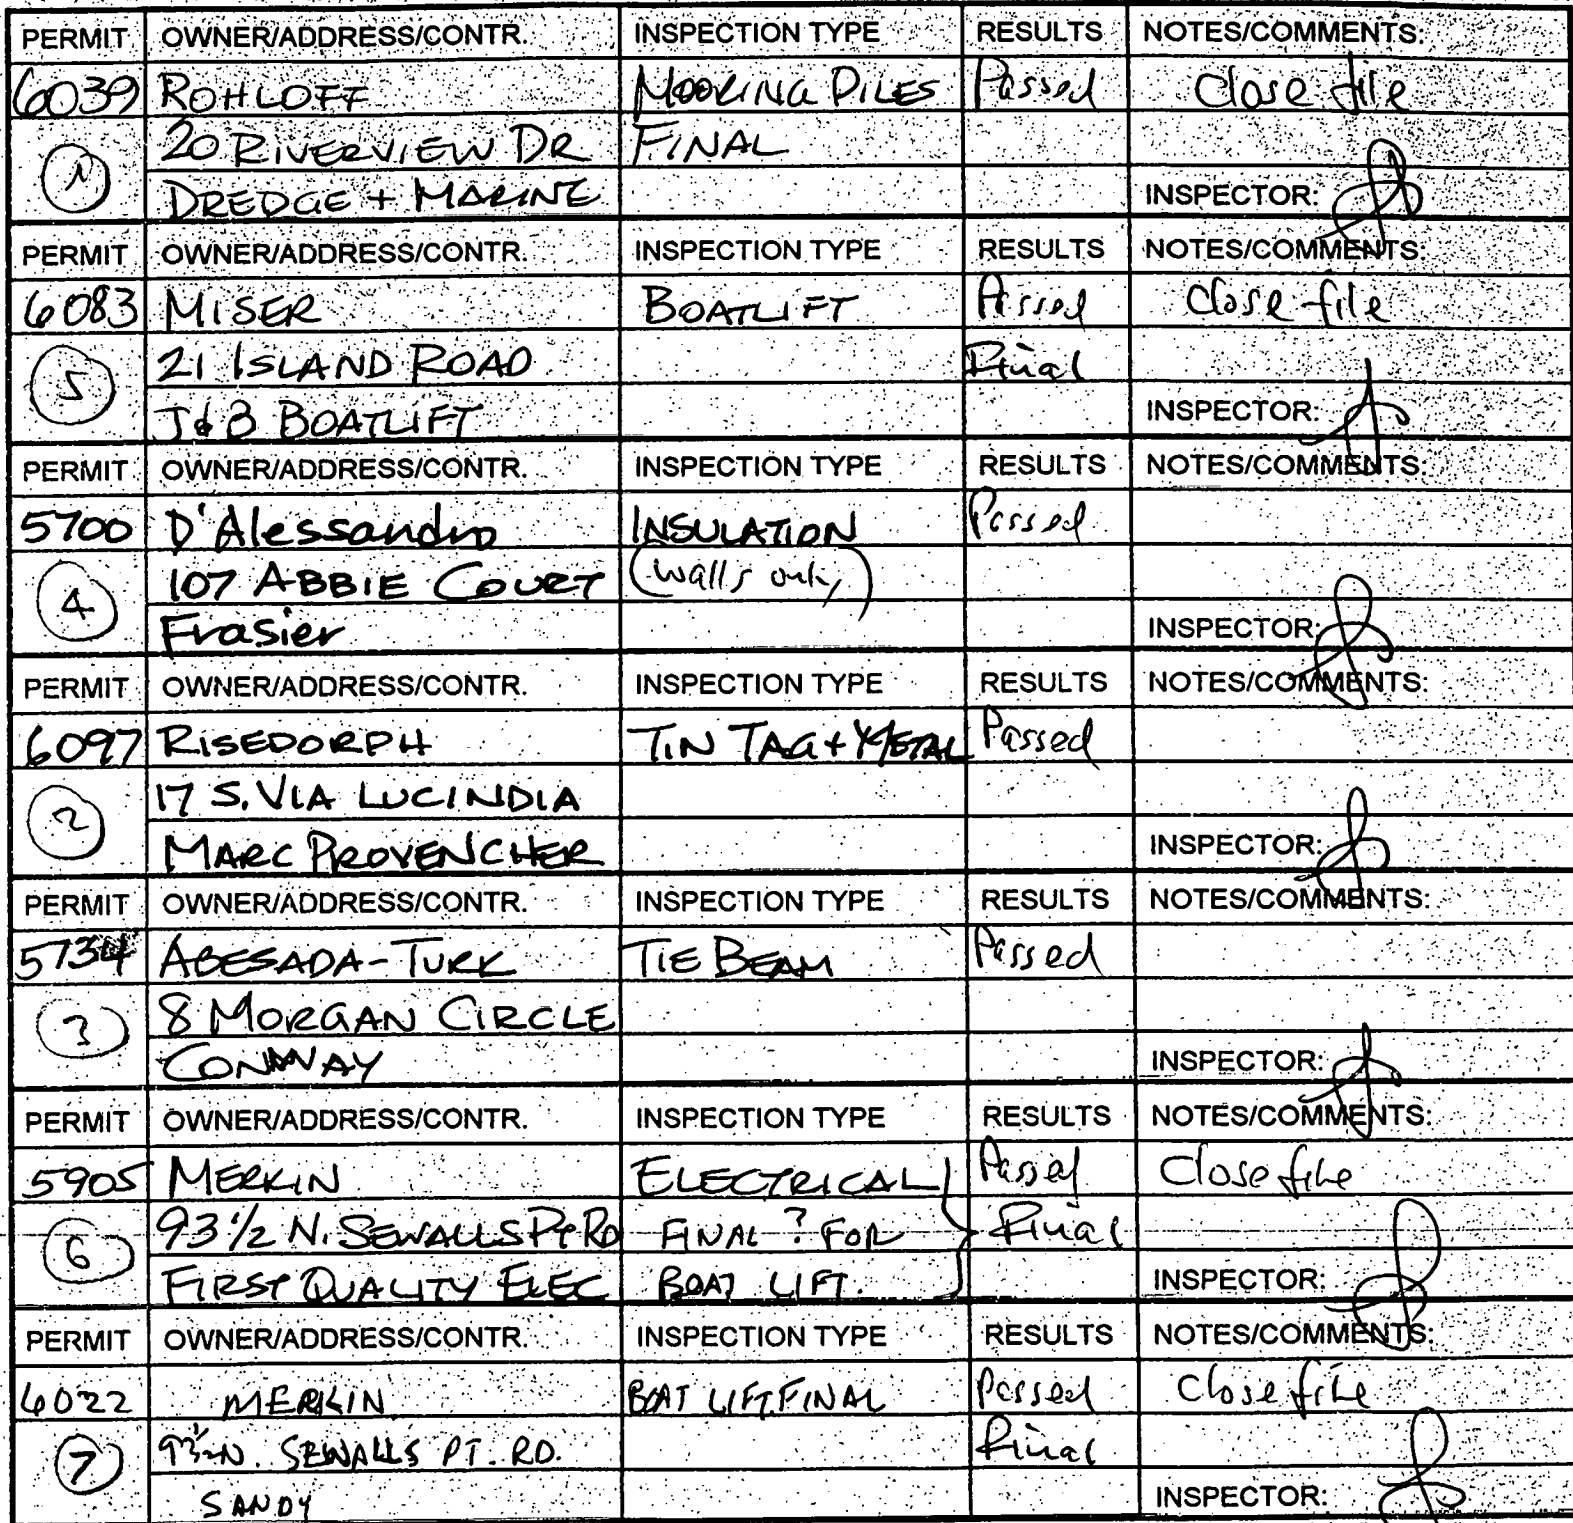 PERMIT OWNER/ADDRESS/CONTR. INSPECTION TYPE RESULTS NOTES/COMMENTS:
6039 ROHLOFF MOORING PILES Passed Close file
20 RIVERVIEW DR FINAL
DREDGE + MARINE INSPECTOR:
PERMIT OWNER/ADDRESS/CONTR. INSPECTION TYPE RESULTS NOTES/COMMENTS:
6083 MISER BOATLIFT Passed Close file
5 21 ISLAND ROAD Final
J&B BOATLIFT INSPECTOR:
PERMIT OWNER/ADDRESS/CONTR. INSPECTION TYPE RESULTS NOTES/COMMENTS:
5700 D'Alessandro INSULATION Passed
4 107 ABBIE COURT (walls only)
Frasier INSPECTOR:
PERMIT OWNER/ADDRESS/CONTR. INSPECTION TYPE RESULTS NOTES/COMMENTS:
6097 RISEDORPH TIN TAG + METAL Passed
2 17 S. VIA LUCINDIA
MARC PROVENCHER INSPECTOR:
PERMIT OWNER/ADDRESS/CONTR. INSPECTION TYPE RESULTS NOTES/COMMENTS:
5734 ABESADA-TURK TIE BEAM Passed
3 8 MORGAN CIRCLE
CONWAY INSPECTOR:
PERMIT OWNER/ADDRESS/CONTR. INSPECTION TYPE RESULTS NOTES/COMMENTS:
5905 MERKIN ELECTRICAL Passed Close file
6 93 1/2 N. SEWALLS PT RD FINAL ? FOR Final
FIRST QUALITY ELEC BOAT LIFT. INSPECTOR:
PERMIT OWNER/ADDRESS/CONTR. INSPECTION TYPE RESULTS NOTES/COMMENTS:
6022 MERKIN BOAT LIFT FINAL Passed Close file
7 93 1/2 N. SEWALLS PT. RD. Final
SANDY INSPECTOR: